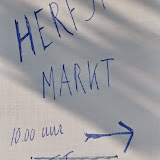 HERFST
MARKT
10.00 uur